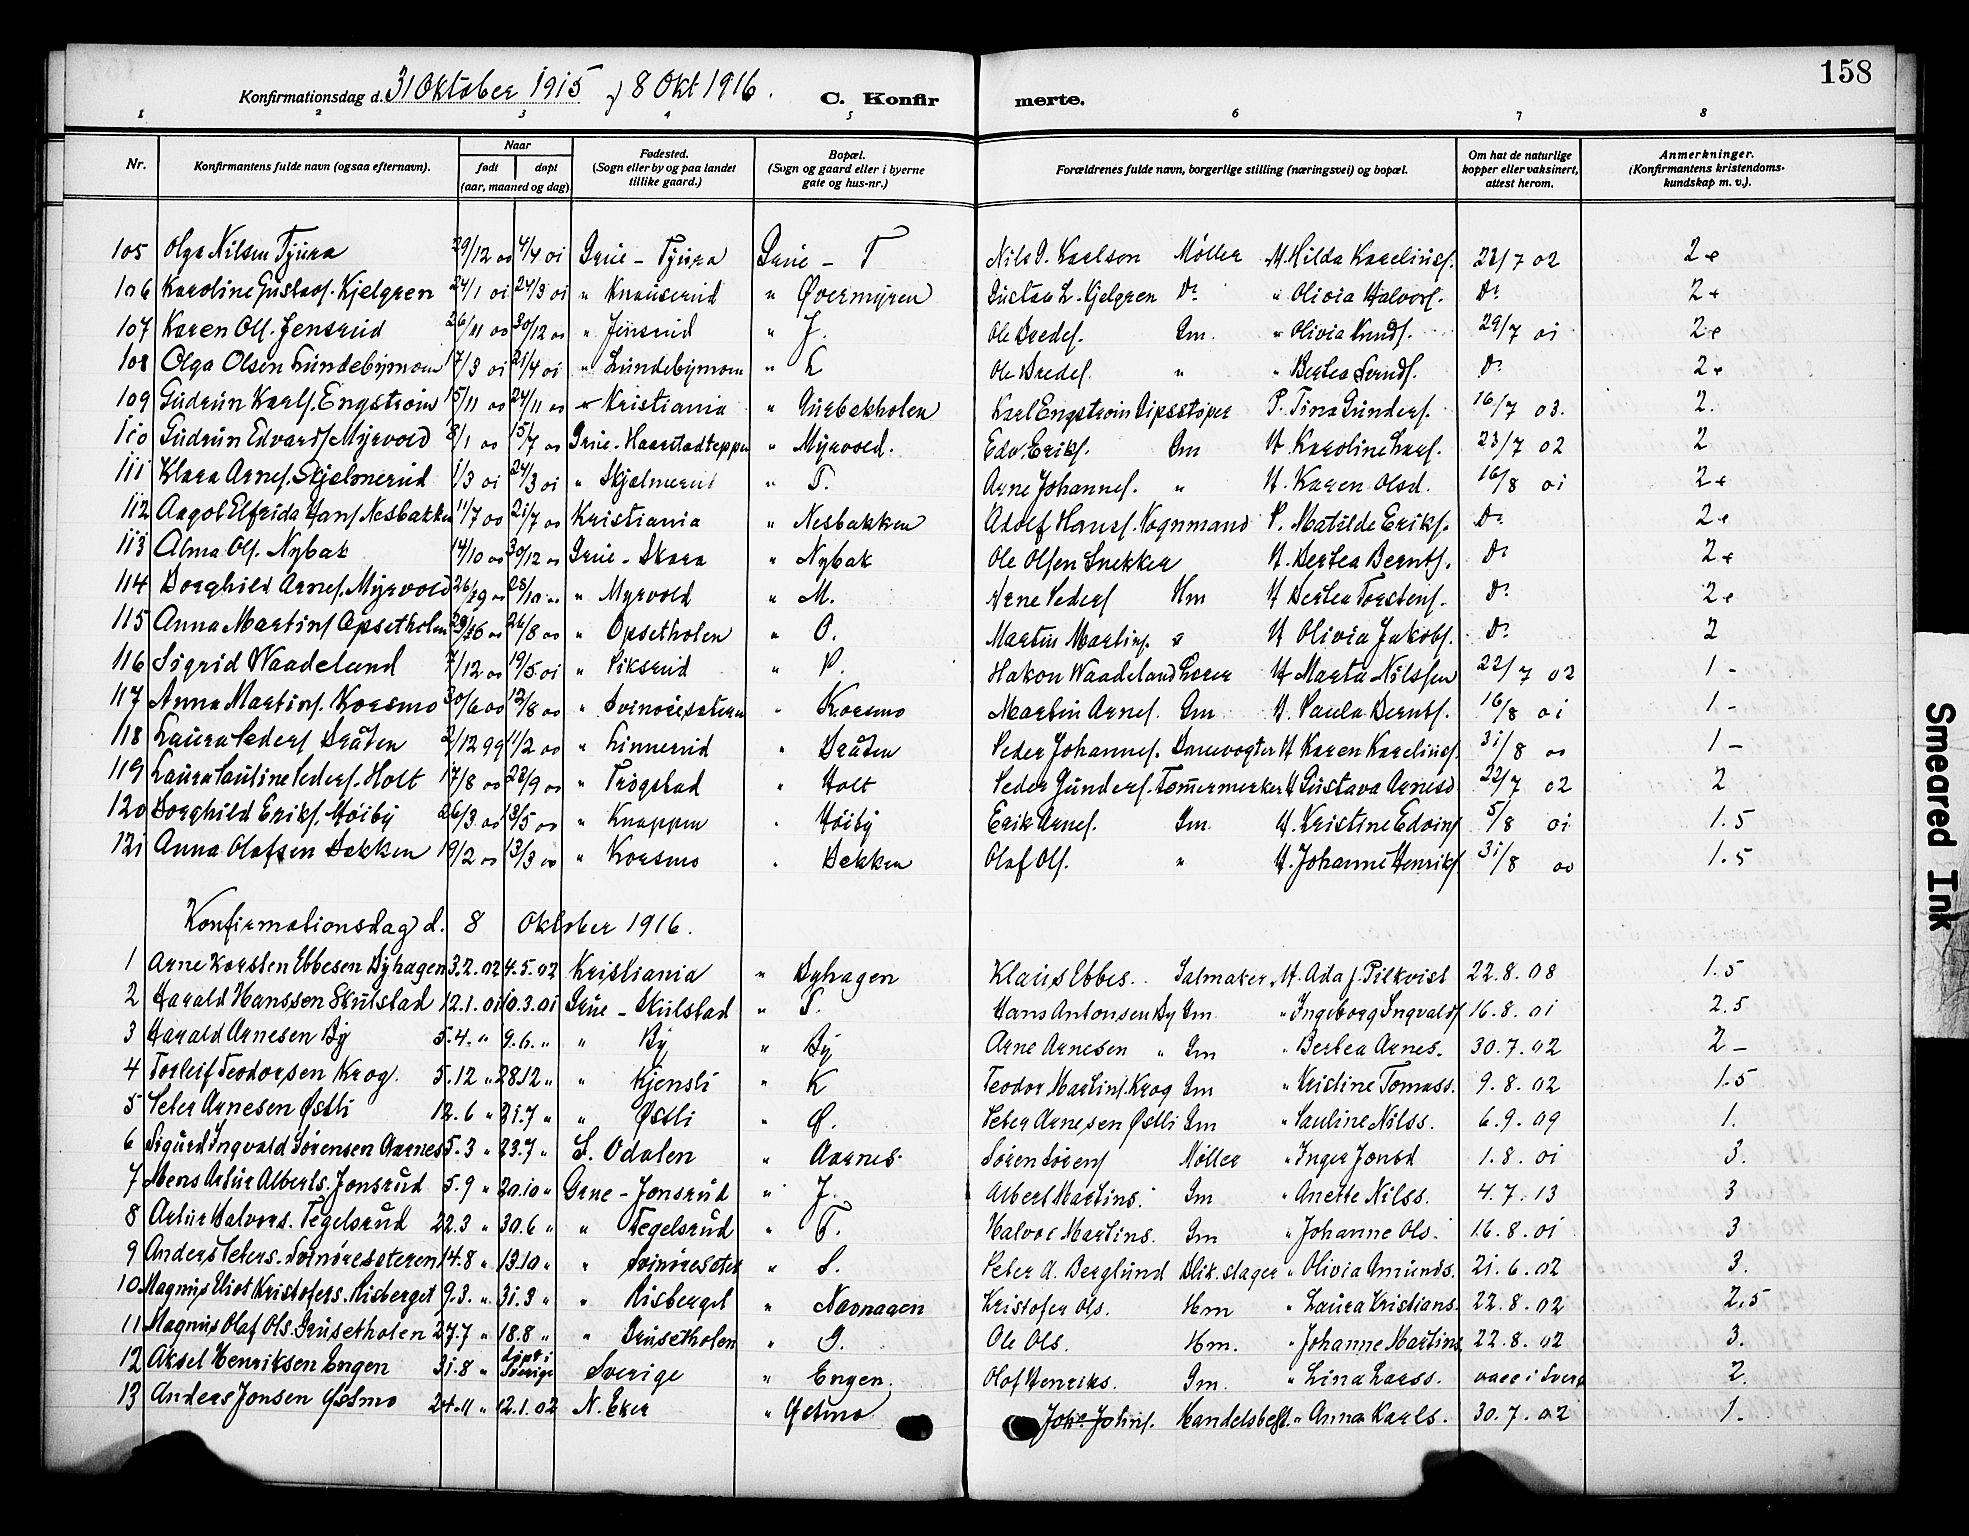 158
Konfirmationsdag d. 31 Oktober 1915 of 8 Okt 1916. C. Konfirmerte.
1 2 3 4 5 6 7 8
Nr. Konfirmantens fulde navn (ogsaa efternavn). Naar født døpt (aar, maaned og dag) Fødested. (Sogn eller by og paa landet tillike gaard.) Bopæl. (Sogn og gaard eller i byerne gate og hus-nr.) Forældrenes fulde navn, borgerlige stilling (næringsvei) og bopæl. Om hat de naturlige kopper eller vaksinert, attest herom. Anmerkninger. (Konfirmantens kristendomskundskap m. v.).
105 Olga Nilsen Tjura 29/12 00 4/4 01 Grue - Tjura Grue - T Nils G. Karlson Møller H Hilda Karelinsf. 22/7 02 2+
106 Karoline Gustavf. Kjelgren 24/1 01 24/3 01 " Knauserud " Øvermyren Gustav L. Kjelgren Do " Olivia Halvorf. Do 2+
107 Karen Olf. Jensrud 26/11 00 30/12 00 " Jensrud " J. Ole Bredef. Gm. " Olivia Knudf. 29/7 01 2+
108 Olga Olsen Lundebymoen 17/3 01 21/4 01 " Lundebymoen " L Ole Bredef. " " Bertea Berndf. Do 2+
109 Gudrun Karlf. Engstrøm 15/11 00 24/11 00 Kristiania " Gurbekholen Karl Engstrøm Gipsstøper P. Tina Gunderf. 16/7 03. 2.
110 Gudrun Edvardf Myrvold 8/1 00 15/7 00 Grue - Haarstadteppen " Myrvold. Edv. Erikf. Gm H Karoline Larf. 23/7 02 2
111 Klara Arnef. Skjelmerud 1/3 01 24/3 01 " Skjelmerud " T. Arne Johannef. " H. Karen Olsd. 16/8 01 2+
112 Aagot Elfrida Hanf Nesbakken 11/7 00 21/7 00 Kristiania " Nesbakken Adolf Hansf. Vognmand P. Matilde Erikf. Do 2+
113 Alma Olf. Nybak 14/10 00 30/12 00 Grue - Skara " Nybak Ole Olsen Snekker H. Bertea Berntf. Do 2+
114 Borghild Arnef. Myrvold 26/9 00 28/10 00 " Myrvold " M. Arne Pederf Hm H Bertea Torstenf. Do 2+
115 Anna Martinf Opsetholen 26/8 00 " Opsetholen " O. Martin Martinf. " H Olivia Jakobf. Do 2
116 Sigrid Waadeland 7/12 00 19/5 01 " Piksrud " P. Hakon Waadeland Lærer H Marta Nilssen 22/7 02 1 -
117 Anna Martinf. Korsmo 30/6 00 12/8 00 " Svinøresæteren " Korsmo Martin Arnef. Gm H. Paula Berntf. 16/8 01 1 -
118 Laura Pederf Bråten 2/12 99 11/2 00 " Linnerud " Bråten Peder Johannef. Banevogter H Karen Karelinsf. 31/8 00 1 -
119 Laura Pauline Pederf. Holt 17/8 00 22/9 00 " Trøgstad " Holt Peder Gunderf. Tømmermerker H Gustava Arnesd 22/7 02 2
120 Borghild Erikf. Høiby 26/3 00 13/5 00 " Knappen " Høiby Erik Arnef. Gm. H. Kristine Edvinf 5/8 01 1.5
121 Anna Olafsen Bekken 19/2 00 13/3 00 " Korsmo " Bekken Olaf Olf. " H. Johanne Henrikf. 31/8 00 1.5
Konfirmationsdag d. 8 Oktober 1916.
1 Arne Karsten Ebbesen Dyhagen 3.2.02 4.5.02 Kristiania " Dyhagen Klaus Ebbes. Salmaker H. Ada J. Pilkvist 22.8.08 1.5
2 Harald Hanssen Skulstad 12.1.01 10.3.01 Grue - Skulstad " S. Hans Antonsen By Gm " Ingeborg Ingvaldf 16.8.01 2.5
3 Harald Arnesen By 5.4. " 9.6. " " By " By Arne Arnesen " Gm " Bertea Arnes. 30.7.02 2 -
4 Torleif Teodorsen Krog. 5.12 " 28.12 " " Kjensli " K Teodor Martinf. Krog Gm " Kristine Tomass. 9.8.02 1.5
5 Peter Arnesen Østli 12.6 " 21.7 " " Østli " Ø. Peter Arnesen Østli Gm " Pauline Nilss. 6.9.09 1.
6 Sigurd Ingvald Sørensen Aarnes 5.3 " 23.7 " S. Odalen " Aarnes Søren Sørenf Møller " Inger Jonsd 1.8.01 3.
7 Mens Artur Alberts. Jonsrud 5.9 " 20.10 " Grue - Jonsrud " J. Albert Martins. Gm " Anette Nilss. 4.7.13 3
8 Artur Halvors. Tegelsrud 22.3 " 30.6 " " Tegelsrud " T. Halvor Martins. Gm " Johanne Ols. 16.8.01 3
9 Anders Peters. Svinøresæteren 14.8 " 13.10 " " Svinøresæter " S. Peter A. Berglund Blik.slager " Olivia Amunds. 21.6.02 3.
10 Magnus Eliot Kristofers. Risberget 9.3. " 31.3 " " Risberget " Navnaaen Kristofer Ols. Hm " Laura Kristians. 22.8.02 2.5
11 Magnus Olaf Ols. Grusetholen 27.7 " 18.8 " " Grusetholen " G. Ole Ols. Hm. " Johanne Martins 22.8.02 3.
12 Aksel Henriksen Engen 31.8 " døpt i Sverige Sverige " Engen. Olof Henriks. Gm. " Lina Larss. vacc i Sver. 2.
13 Anders Jonsen Østmo 24.11 " 12.1.02 N. Eker " Østmo Johs Johnf. Handelsbest. " Anna Karls. 30.7.02 1 -
Smeared Ink